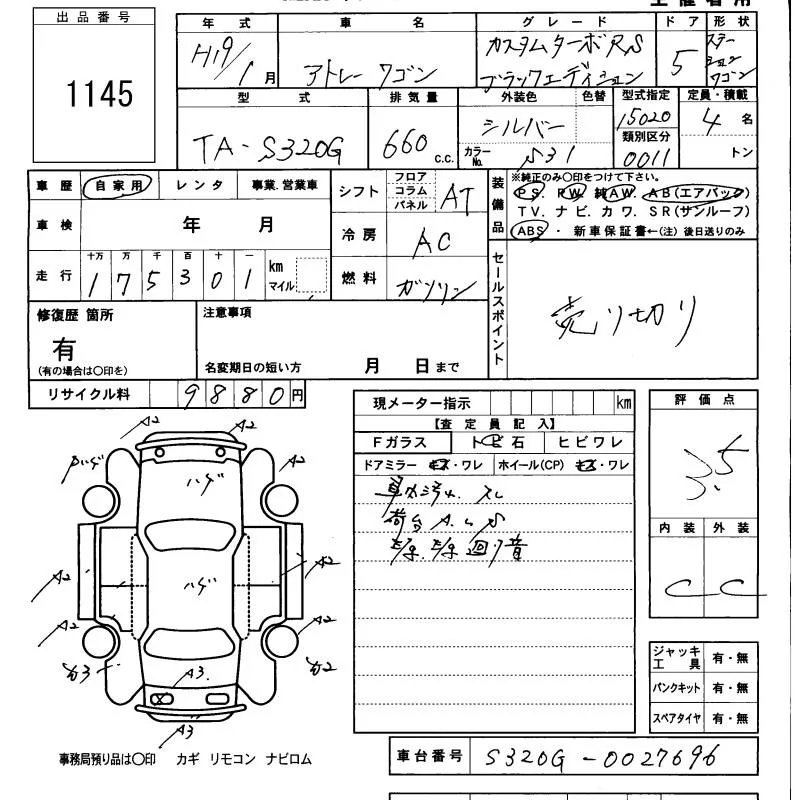 出品番号
1145
年式 車名 グレード ドア 形状
H19/1月 アトレーワゴン カスタムターボRS ブラックエディション 5 ステーションワゴン
型式 排気量 外装色 色替 型式指定 定員・積載
TA-S320G 660 c.c. シルバー 15020 4名
カラーNo. S31 類別区分 0011 トン
車歴 自家用 レンタ 事業.営業車
車検 年 月
走行 十万 万 千 百 十 一 km マイル
1 7 5 3 0 1
シフト フロア コラム パネル AT
冷房 AC
燃料 ガソリン
装備品
※純正のみ〇印をつけて下さい。
PS. PW. 純AW. AB(エアバック)
TV. ナビ. カワ. SR(サンルーフ)
ABS ・ 新車保証書←(注) 後日送りのみ
セールスポイント
売り切り
修復歴 箇所
有
(有の場合は〇印を)
注意事項
名変期日の短い方 月 日まで
リサイクル料 9880円
現メーター指示 km
【査定員記入】
Fガラス トビ石 ヒビワレ
ドアミラー キズ・ワレ ホイール(CP) キズ・ワレ
車内汚れ. スレ
荷台 A. S
回り音
評価点
3.5
内装 外装
C C
A2 A2
ハゲ ハゲ A2
A2 ハゲ A2
A2 A2
A3.
A3
ジャッキ工具 有・無
パンクキット 有・無
スペアタイヤ 有・無
事務局預り品は〇印 カギ リモコン ナビロム
車台番号 S320G-0027696